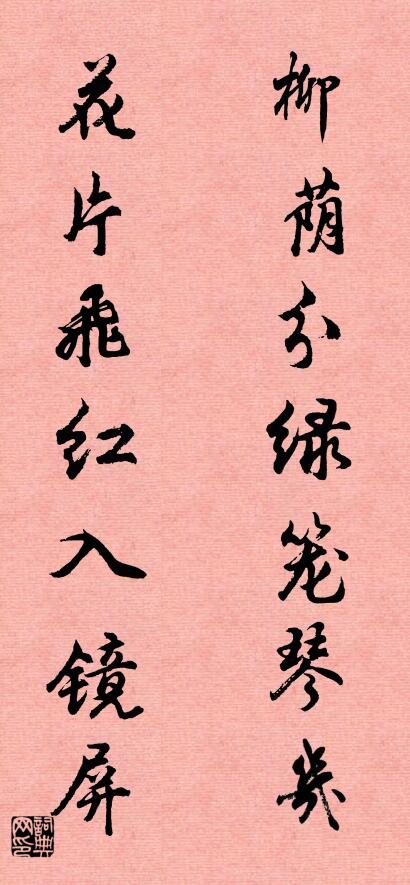 柳荫分绿笼琴幾
花片飛红入镜屏
詞典
网印